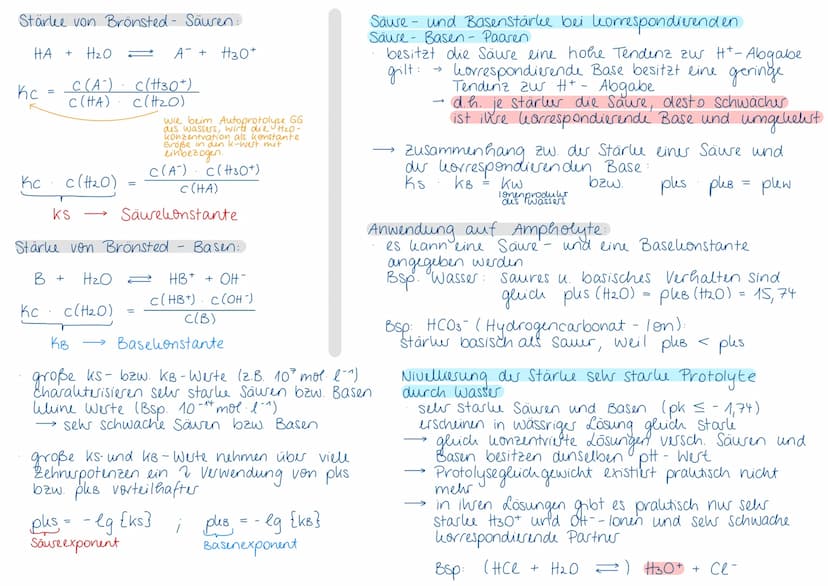 Stärke von Brönsted-Säuren:
HA + H2O ⇌ A⁻ + H3O⁺
Kc = c(A⁻) · c(H3O⁺) / c(HA) · c(H2O)
wie beim Autoprotolyse GG
des Wassers, wird die H2O-
Konzentration als konstante
Größe in den K-Wert mit
einbezogen
Kc · c(H2O) = c(A⁻) · c(H3O⁺) / c(HA)
KS → Säurekonstante
Stärke von Brönsted-Basen:
B + H2O ⇌ HB⁺ + OH⁻
Kc · c(H2O) = c(HB⁺) · c(OH⁻) / c(B)
KB → Basekonstante
· große KS- bzw. KB-Werte (z.B. 10⁷ mol l⁻¹)
charakterisieren sehr starke Säuren bzw. Basen
kleine Werte (Bsp. 10⁻¹⁴ mol · l⁻¹)
→ sehr schwache Säuren bzw Basen
· große KS- und KB-Werte nehmen über viele
Zehnerpotenzen ein → Verwendung von pKS
bzw. pKB vorteilhafter
pKS = -lg {KS} ; pKB = -lg {KB}
Säureexponent Basenexponent
Säure- und Basenstärke bei korrespondierenden
Säure-Basen-Paaren
· besitzt die Säure eine hohe Tendenz zur H⁺-Abgabe
gilt: → korrespondierende Base besitzt eine geringe
Tendenz zur H⁺-Abgabe
→ d.h. je stärker die Säure, desto schwächer
ist ihre korrespondierende Base und umgekehrt
→ Zusammenhang zw. der Stärke einer Säure und
der korrespondierenden Base:
KS · KB = KW bzw. pKS · pKB = pKW
Ionenprodukt
des Wassers
Anwendung auf Ampholyte:
· es kann eine Säure- und eine Basekonstante
angegeben werden
Bsp. Wasser: saures u. basisches Verhalten sind
gleich pKS (H2O) = pKB (H2O) = 15,74
Bsp: HCO3⁻ (Hydrogencarbonat-Ion):
stärker basisch als sauer, weil pKB < pKS
Nivellierung der Stärke sehr starke Protolyte
durch Wasser
sehr starke Säuren und Basen (pK ≤ -1,74)
erscheinen in wässriger Lösung gleich stark
→ gleich konzentrierte Lösungen versch. Säuren und
Basen besitzen denselben pH-Wert
→ Protolysegleichgewicht existiert praktisch nicht
mehr
→ in ihren Lösungen gibt es praktisch nur sehr
starke H3O⁺ und OH⁻-Ionen und sehr schwache
korrespondierende Partner
Bsp: (HCl + H2O ⇌) H3O⁺ + Cl⁻